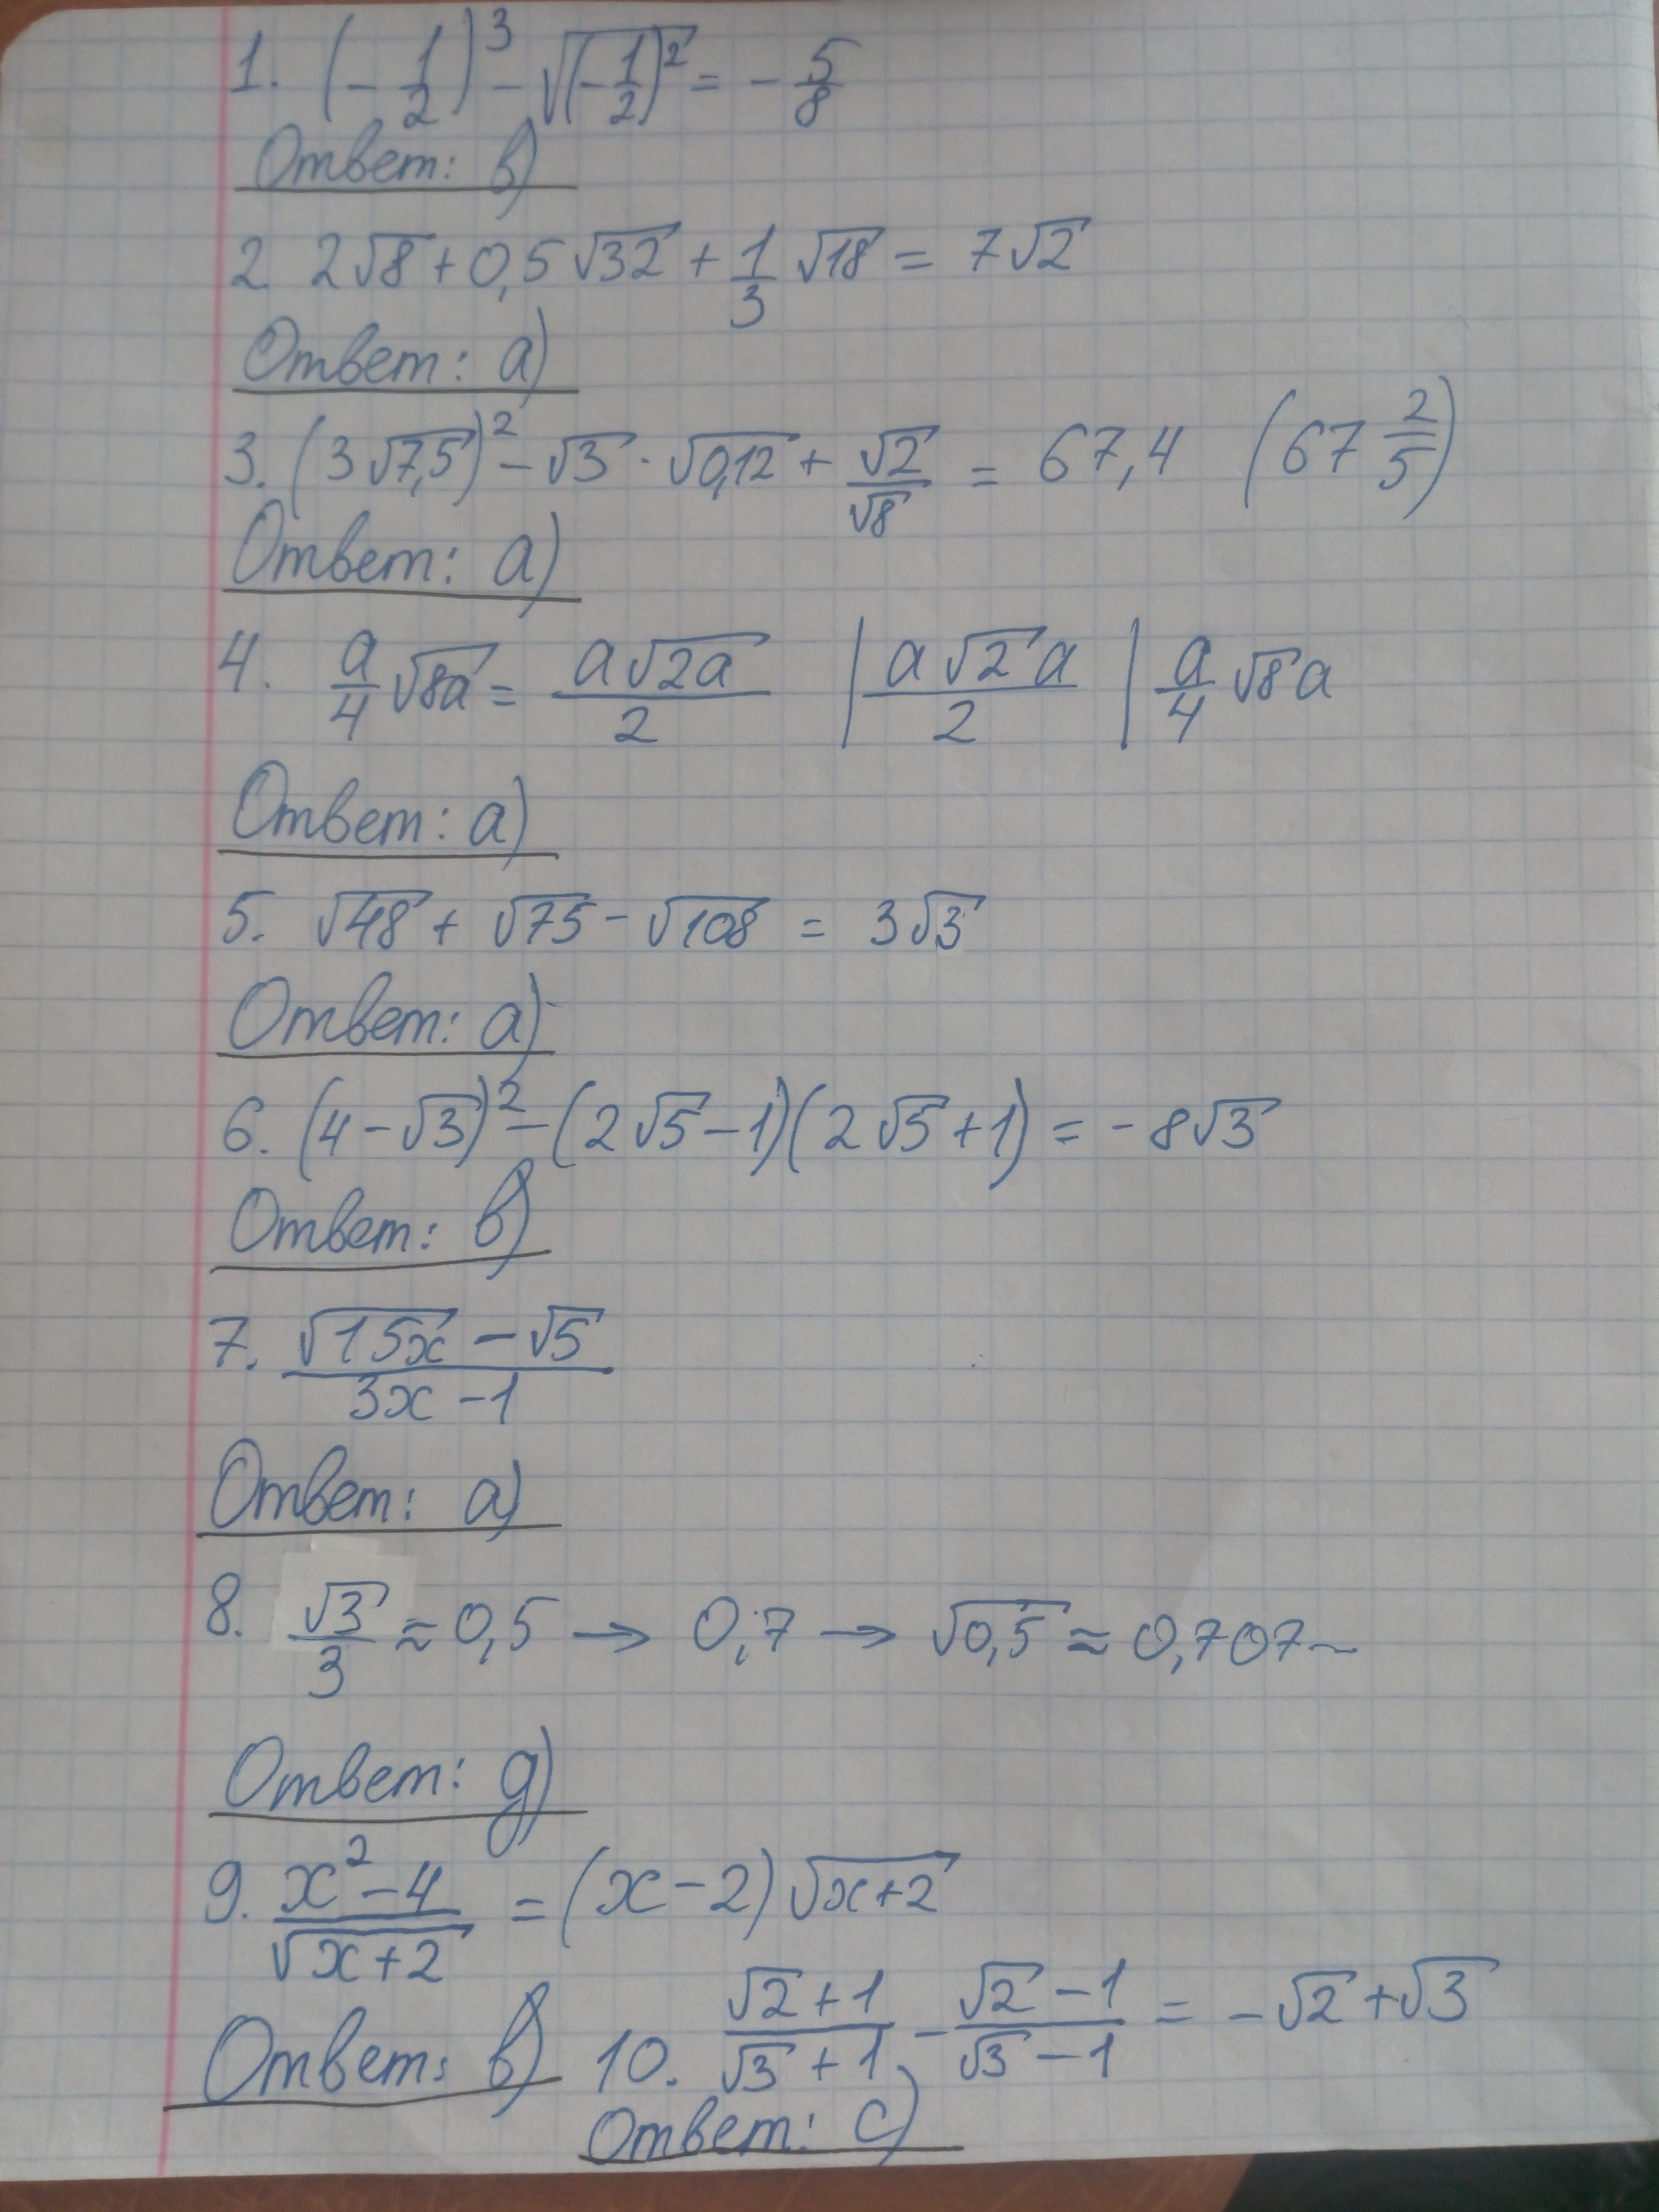 1. (-1/2)³ - √(-1/2)² = -5/8
Ответ: в)
2. 2√8 + 0,5√32 + 1/3 √18 = 7√2
Ответ: а)
3. (3√7,5)² - √3 · √0,12 + √2/√8 = 67,4 (67 2/5)
Ответ: а)
4. a/4 √8a = a√2a/2 | a√2 a/2 | a/4 √8 a
Ответ: а)
5. √48 + √75 - √108 = 3√3
Ответ: а)
6. (4-√3)² - (2√5-1)(2√5+1) = -8√3
Ответ: в)
7. (√15x - √5)/(3x-1)
Ответ: а)
8. √3/3 ≈ 0,5 → 0,7 → √0,5 ≈ 0,707~
Ответ: д)
9. (x²-4)/√(x+2) = (x-2)√(x+2)
Ответ: в)
10. (√2+1)/(√3+1) - (√2-1)/(√3-1) = -√2+√3
Ответ: с)